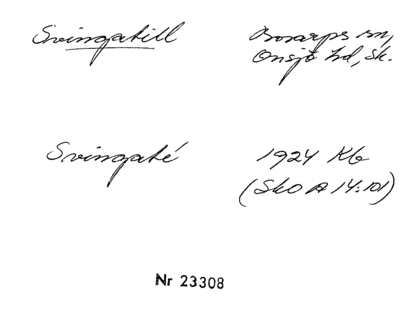 Svingatill
Bosarps sn,
Onsjö hd, Sk.
Svingaté
1924 Kb
(SkO A 14:101)
Nr 23308